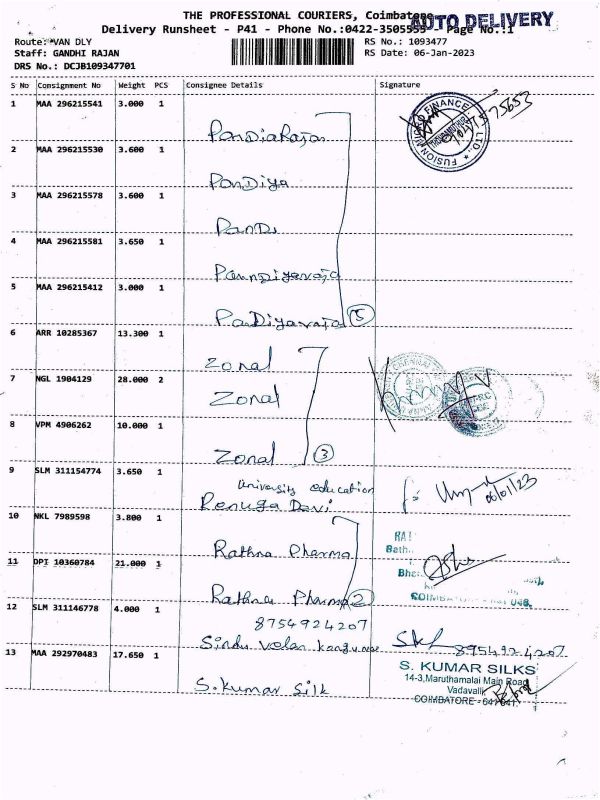 THE PROFESSIONAL COURIERS, Coimbatore
AUTO DELIVERY
Delivery Runsheet - P41 - Phone No.:0422-3505555 - Page No.:1
Route: *VAN DLY RS No.: 1093477
Staff: GANDHI RAJAN RS Date: 06-Jan-2023
DRS No.: DCJB109347701
S No Consignment No Weight PCS Consignee Details Signature
1 MAA 296215541 3.000 1
PandiaRajan
FUSION FINANCE LTD.,
75653
2 MAA 296215530 3.600 1
PanDiya
3 MAA 296215578 3.600 1
PanDi
4 MAA 296215581 3.650 1
5 MAA 296215412 3.000 1
PanDiyaraja 5
6 ARR 10285367 13.300 1
Zonal
7 NGL 1904129 28.000 2
Zonal
8 VPM 4906262 10.000 1
Zonal 3
9 SLM 311154774 3.650 1
University education
Renuga Devi
06/01/23
10 NKL 7989598 3.800 1
Rathna Pharma
11 DPI 10360784 21.000 1
Rathna Pharma 2
12 SLM 311146778 4.000 1
8754924207
Sindu velan
8954924207
13 MAA 292970483 17.650 1
S. Kumar Silk
S. KUMAR SILKS
14-3, Maruthamalai Main Road
Vadavalli,
COIMBATORE - 641 041.